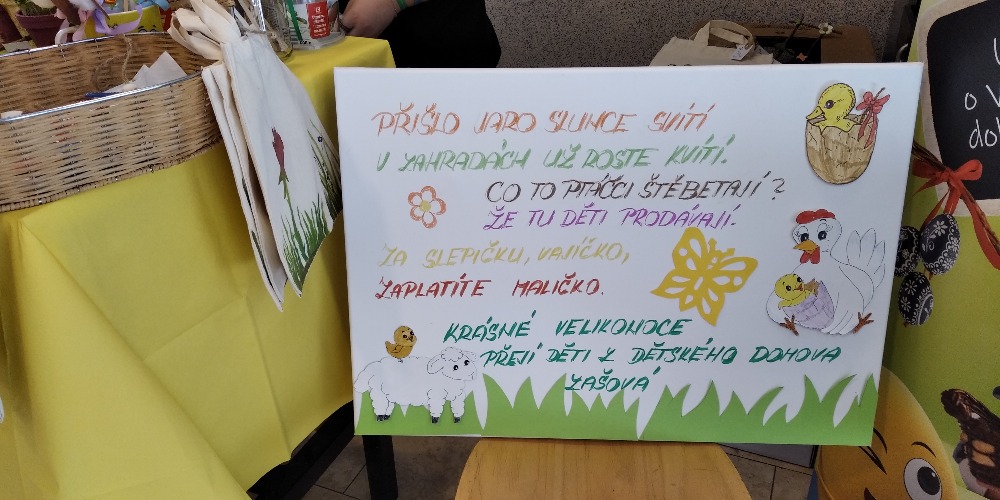 PŘIŠLO JARO SLUNCE SVÍTÍ
V ZAHRADÁCH UŽ ROSTE KVÍTÍ.
CO TO PTÁČCI ŠTĚBETAJÍ?
ŽE TU DĚTI PRODÁVAJÍ.
ZA SLEPIČKU, VAJÍČKO,
ZAPLATÍTE MALIČKO.
KRÁSNÉ VELIKONOCE
PŘEJÍ DĚTI Z DĚTSKÉHO DOMOVA
ZAŠOVÁ